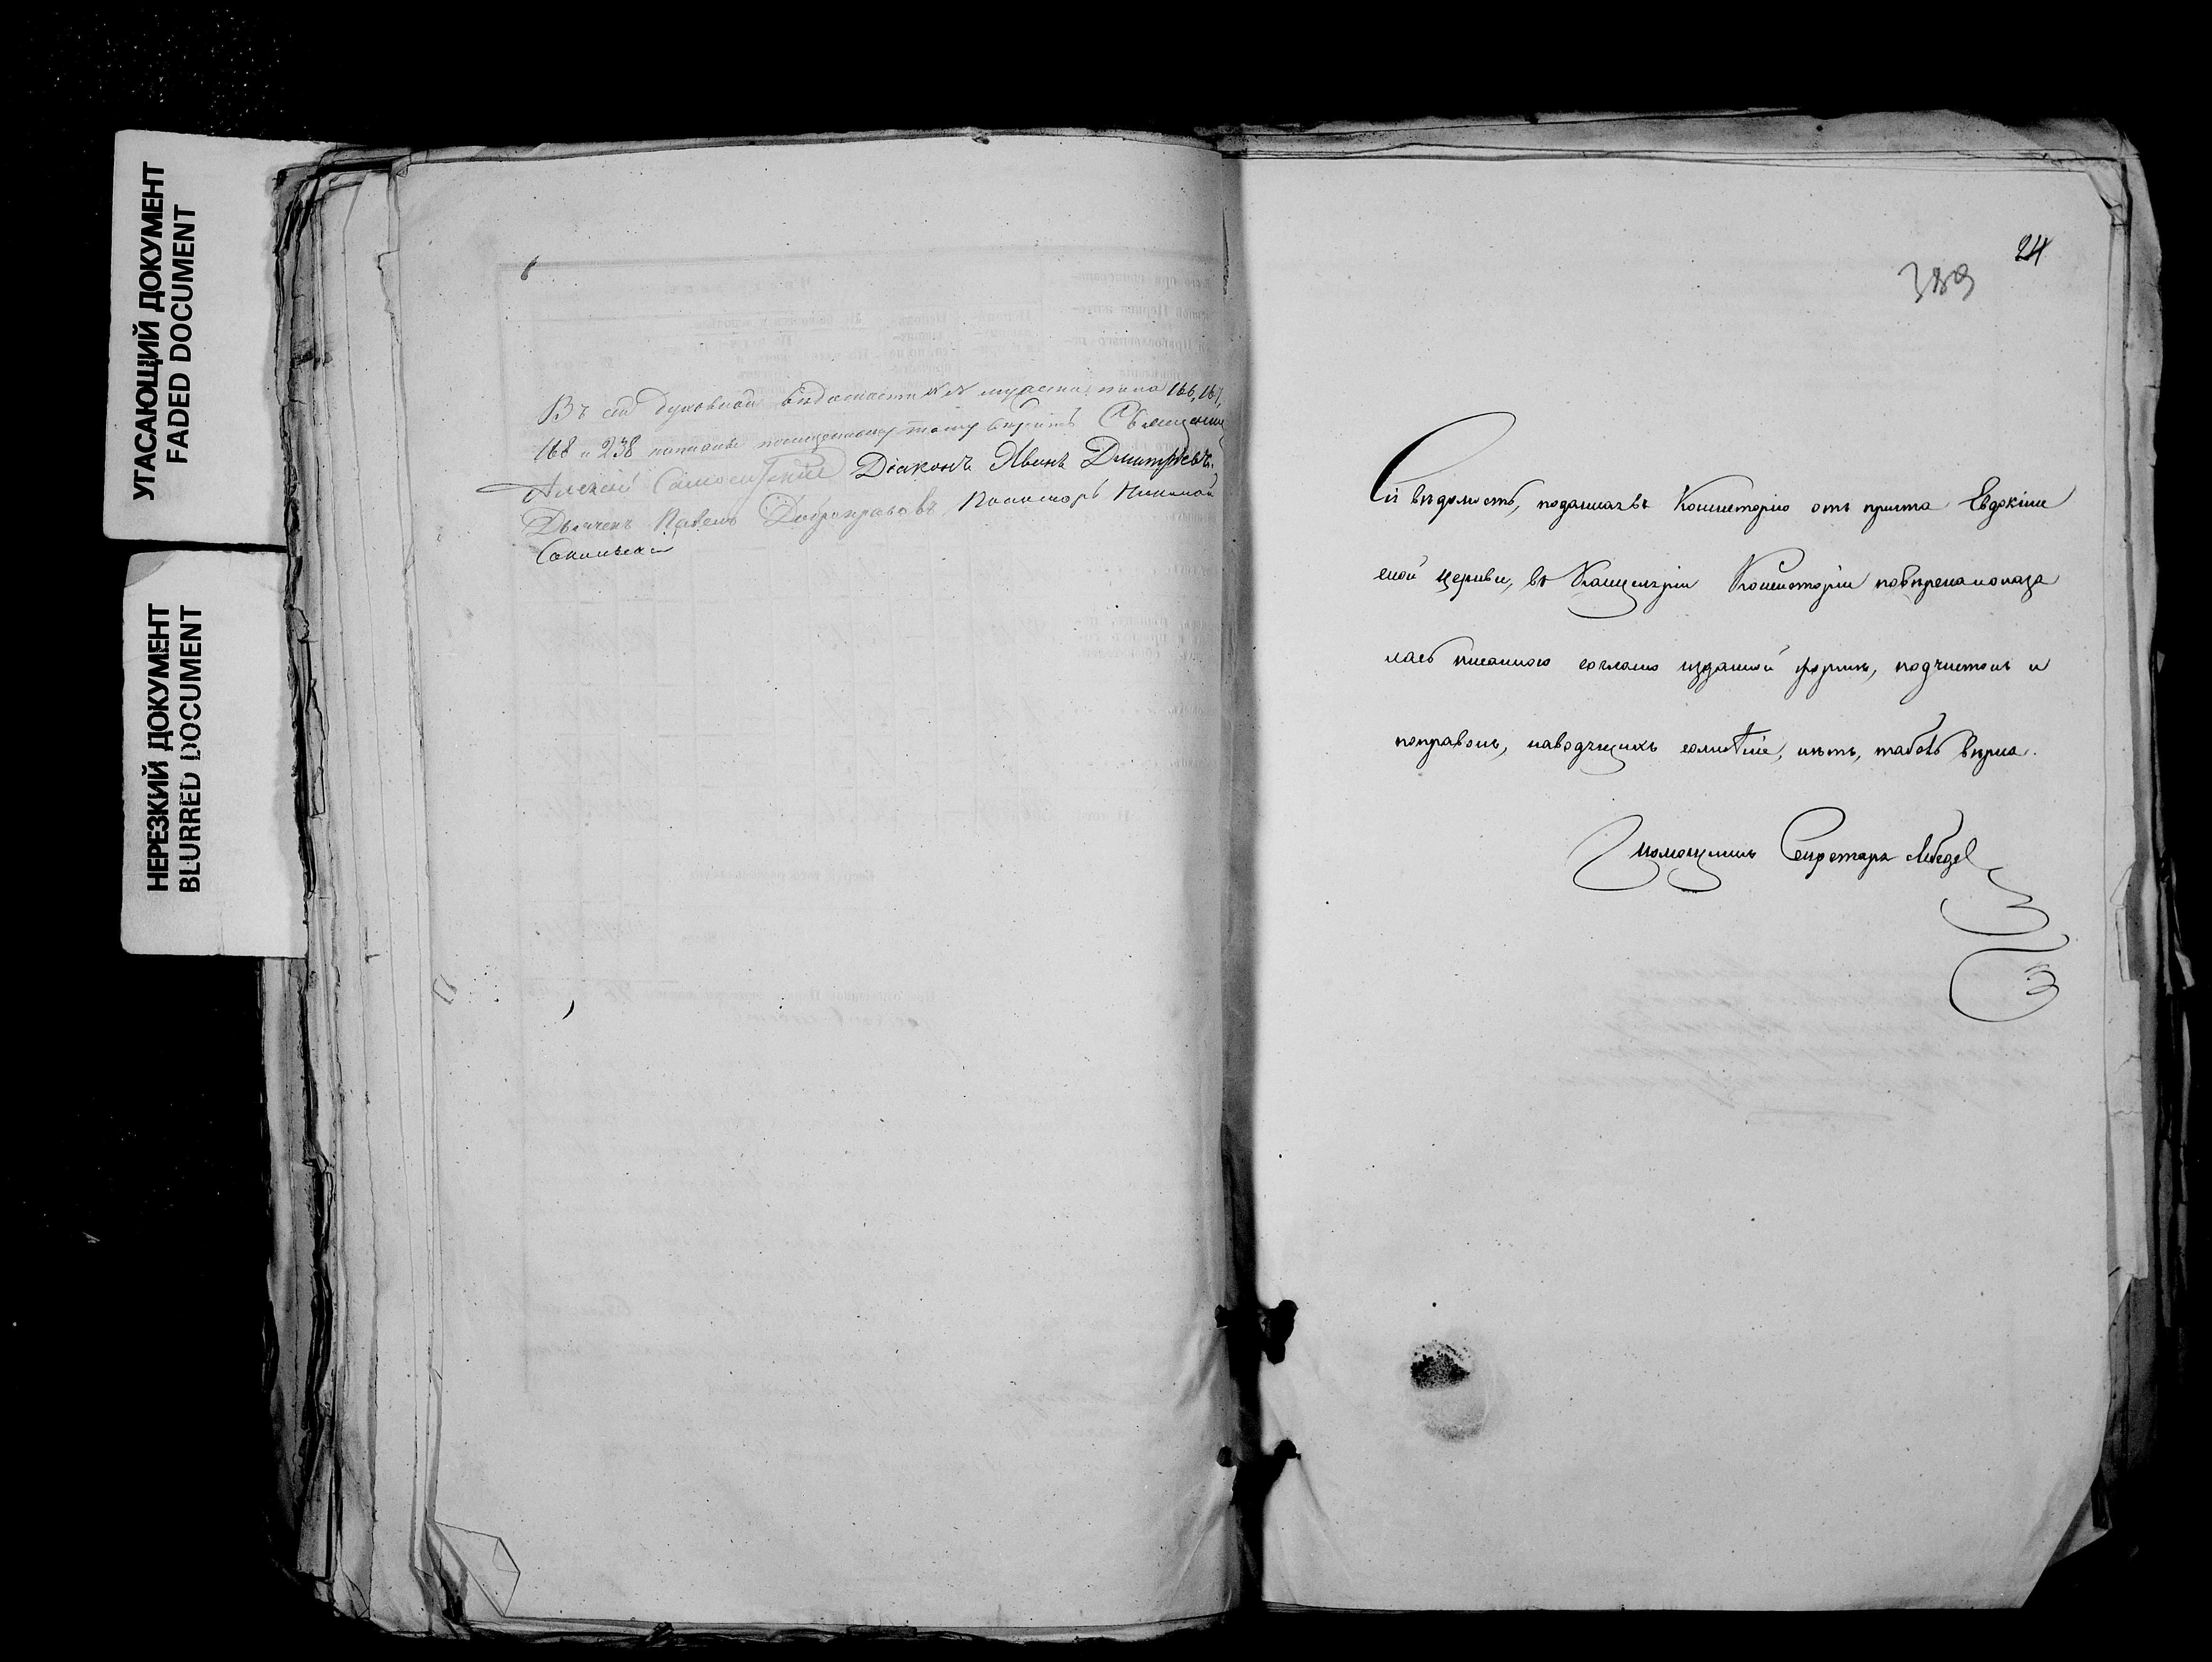 УГАСАЮЩИЙ ДОКУМЕНТ
FADED DOCUMENT
НЕРЕЗКИЙ ДОКУМЕНТ
BLURRED DOCUMENT
Въ сей духовной вѣдомости №№ 166, 167,
168 и 238 Священникъ
Алексій Діаконъ Иванъ Дмитріевъ.
Дьячекъ Павелъ Добронравовъ Пономарь Николай
Сокольскій
24
389
Сія вѣдомость, поданная въ Консисторію отъ причта Евдокіин
ской церкви, въ Канцеляріи Консисторіи повѣрена и оказа
лась писанною согласно изданной формѣ, подчистокъ и
поправокъ, наводящихъ сомнѣніе, нѣтъ, табель вѣрна.
Помощникъ Секретаря Лебедев